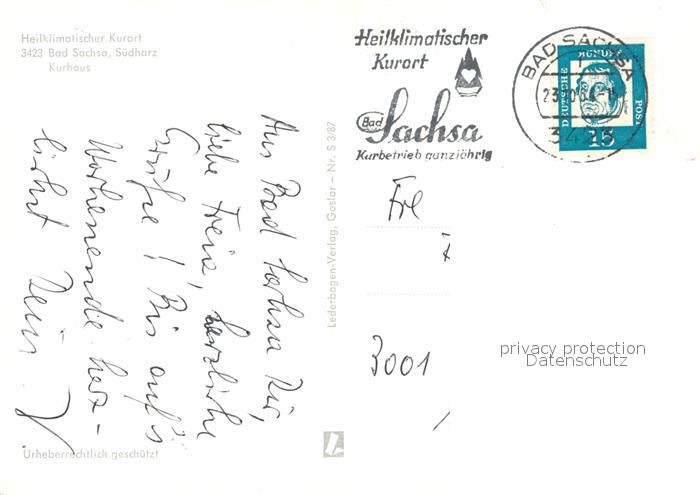 Heilklimatischer Kurort
3423 Bad Sachsa, Südharz
Kurhaus
Aus Bad Sachsa Dir,
liebe Freia, herzliche
Grüße! Bis auf's
Wochenende herz-
lichst Dein
Urheberrechtlich geschützt
Lederbogen-Verlag, Goslar – Nr. S 3/87
Heilklimatischer
Kurort
Bad Sachsa
Kurbetrieb ganzjährig
BAD SACHSA
3423
DEUTSCHE
BUNDES
POST
15
Frl
3001
privacy protection
Datenschutz